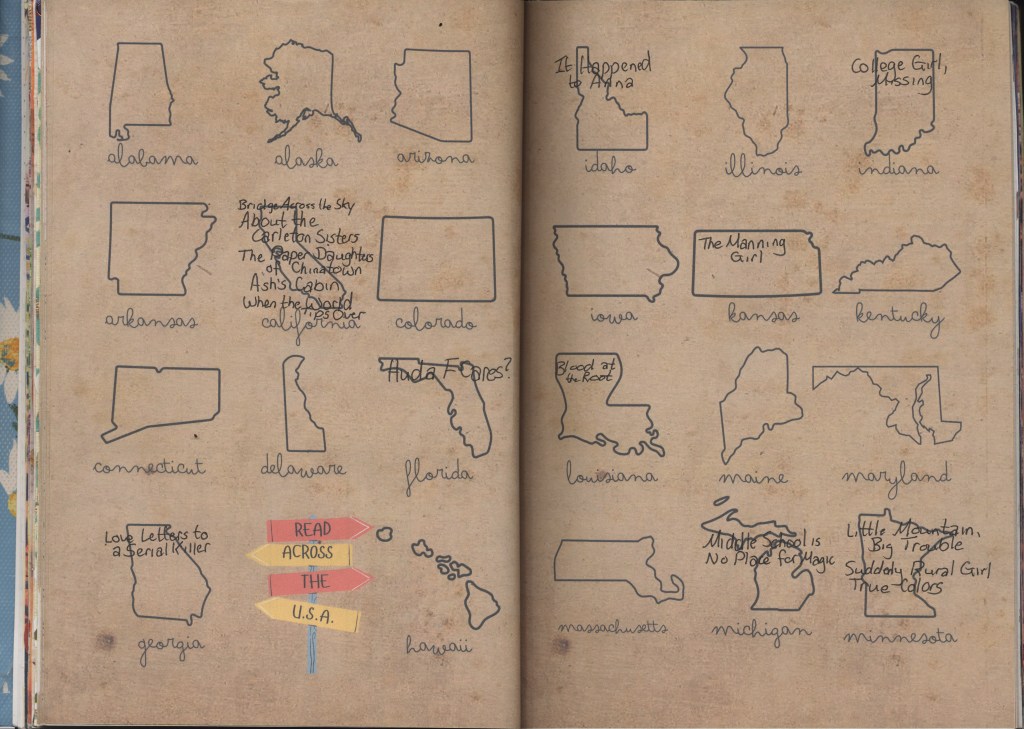 alabama
alaska
arizona
Bridge Across the Sky
About the
Carleton Sisters
The Paper Daughters
of Chinatown
Ash's Cabin
When the World
Tips Over
arkansas
california
colorado
Huda F Cares?
connecticut
delaware
florida
Love Letters to
a Serial Killer
READ
ACROSS
THE
U.S.A.
georgia
hawaii
It Happened
to Anna
College Girl,
Missing
idaho
illinois
indiana
The Manning
Girl
iowa
kansas
kentucky
Blood at
the Root
louisiana
maine
maryland
Middle School is
No Place for Magic
Little Mountain,
Big Trouble
Suddenly Rural Girl
True Colors
massachusetts
michigan
minnesota